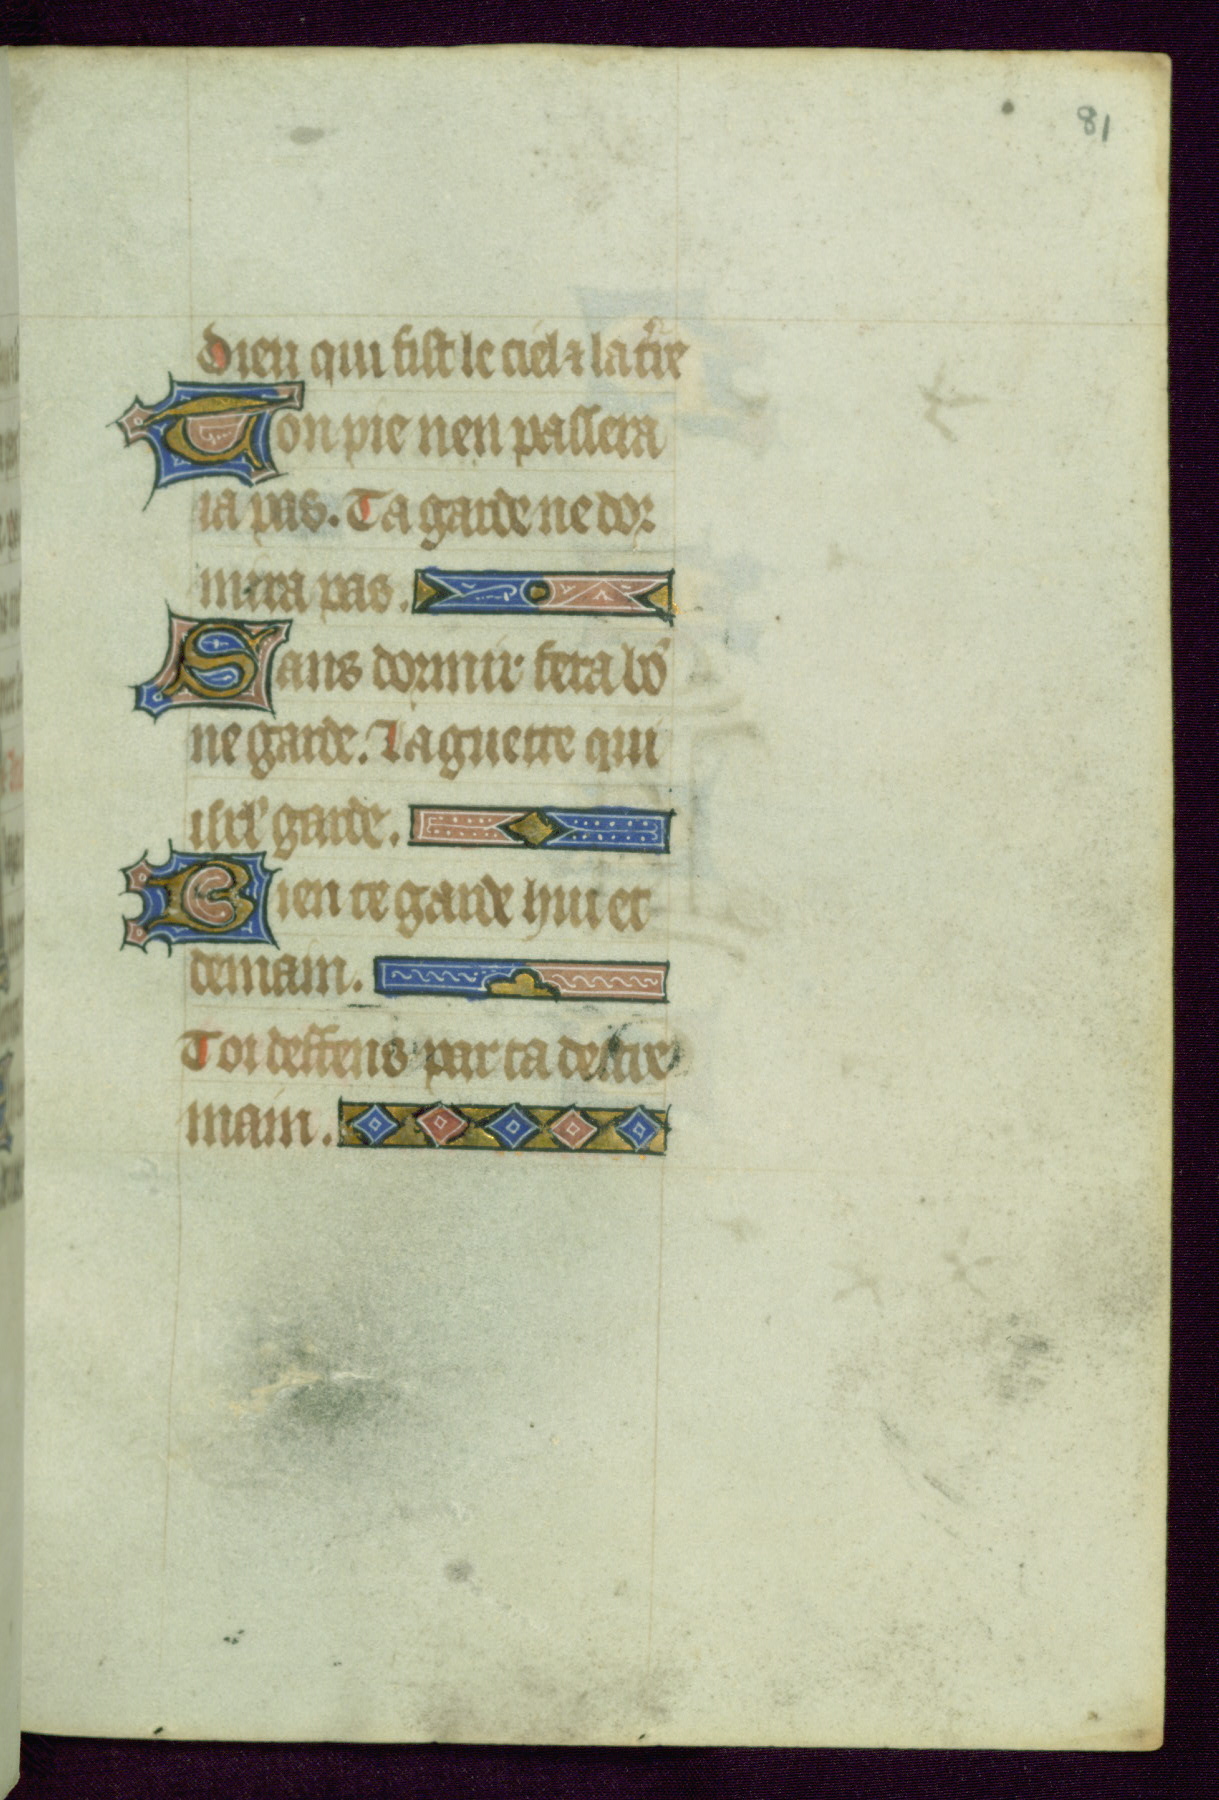 81
Dieu qui fist le ciel ⁊ la t̄re
Ton pie nen passera
ia pas. Ta garde ne dor
mira pas.
Sans dormir fera bō
ne garde. La guette qui
isrl' garde.
Bien te garde hui et
demain.
Toi deffens par ta destre
main.